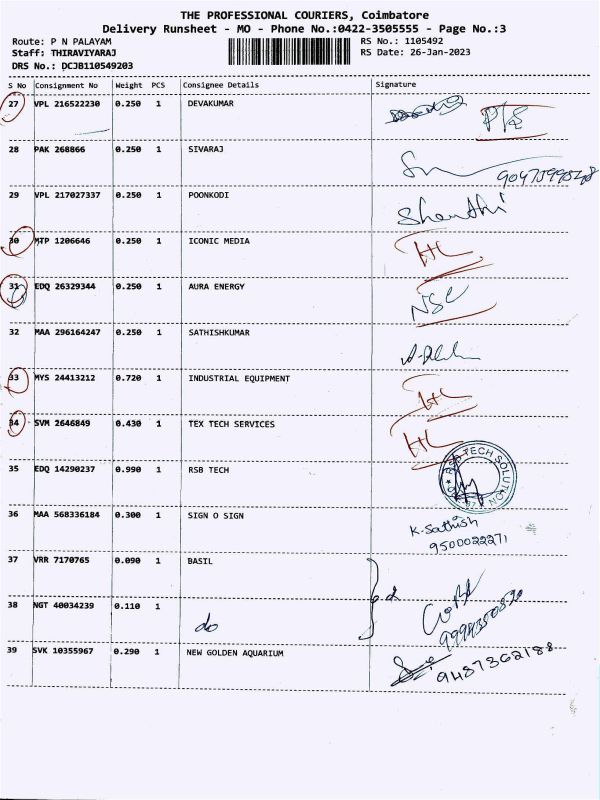 THE PROFESSIONAL COURIERS, Coimbatore
Delivery Runsheet - MO - Phone No.:0422-3505555 - Page No.:3
Route: P N PALAYAM RS No.: 1105492
Staff: THIRAVIYARAJ RS Date: 26-Jan-2023
DRS No.: DCJB110549203
S No Consignment No Weight PCS Consignee Details Signature
27 VPL 216522230 0.250 1 DEVAKUMAR
28 PAK 268866 0.250 1 SIVARAJ
29 VPL 217027337 0.250 1 POONKODI Shanthi
30 MTP 1206646 0.250 1 ICONIC MEDIA
31 EDQ 26329344 0.250 1 AURA ENERGY
32 MAA 296164247 0.250 1 SATHISHKUMAR
33 MYS 24413212 0.720 1 INDUSTRIAL EQUIPMENT
34 SVM 2646849 0.430 1 TEX TECH SERVICES
35 EDQ 14290237 0.990 1 RSB TECH RSB TECH SOLUTION
36 MAA 568336184 0.300 1 SIGN O SIGN K-Sathish
9500022271
37 VRR 7170765 0.090 1 BASIL
38 NGT 40034239 0.110 1 do
39 SVK 10355967 0.290 1 NEW GOLDEN AQUARIUM 9487362188